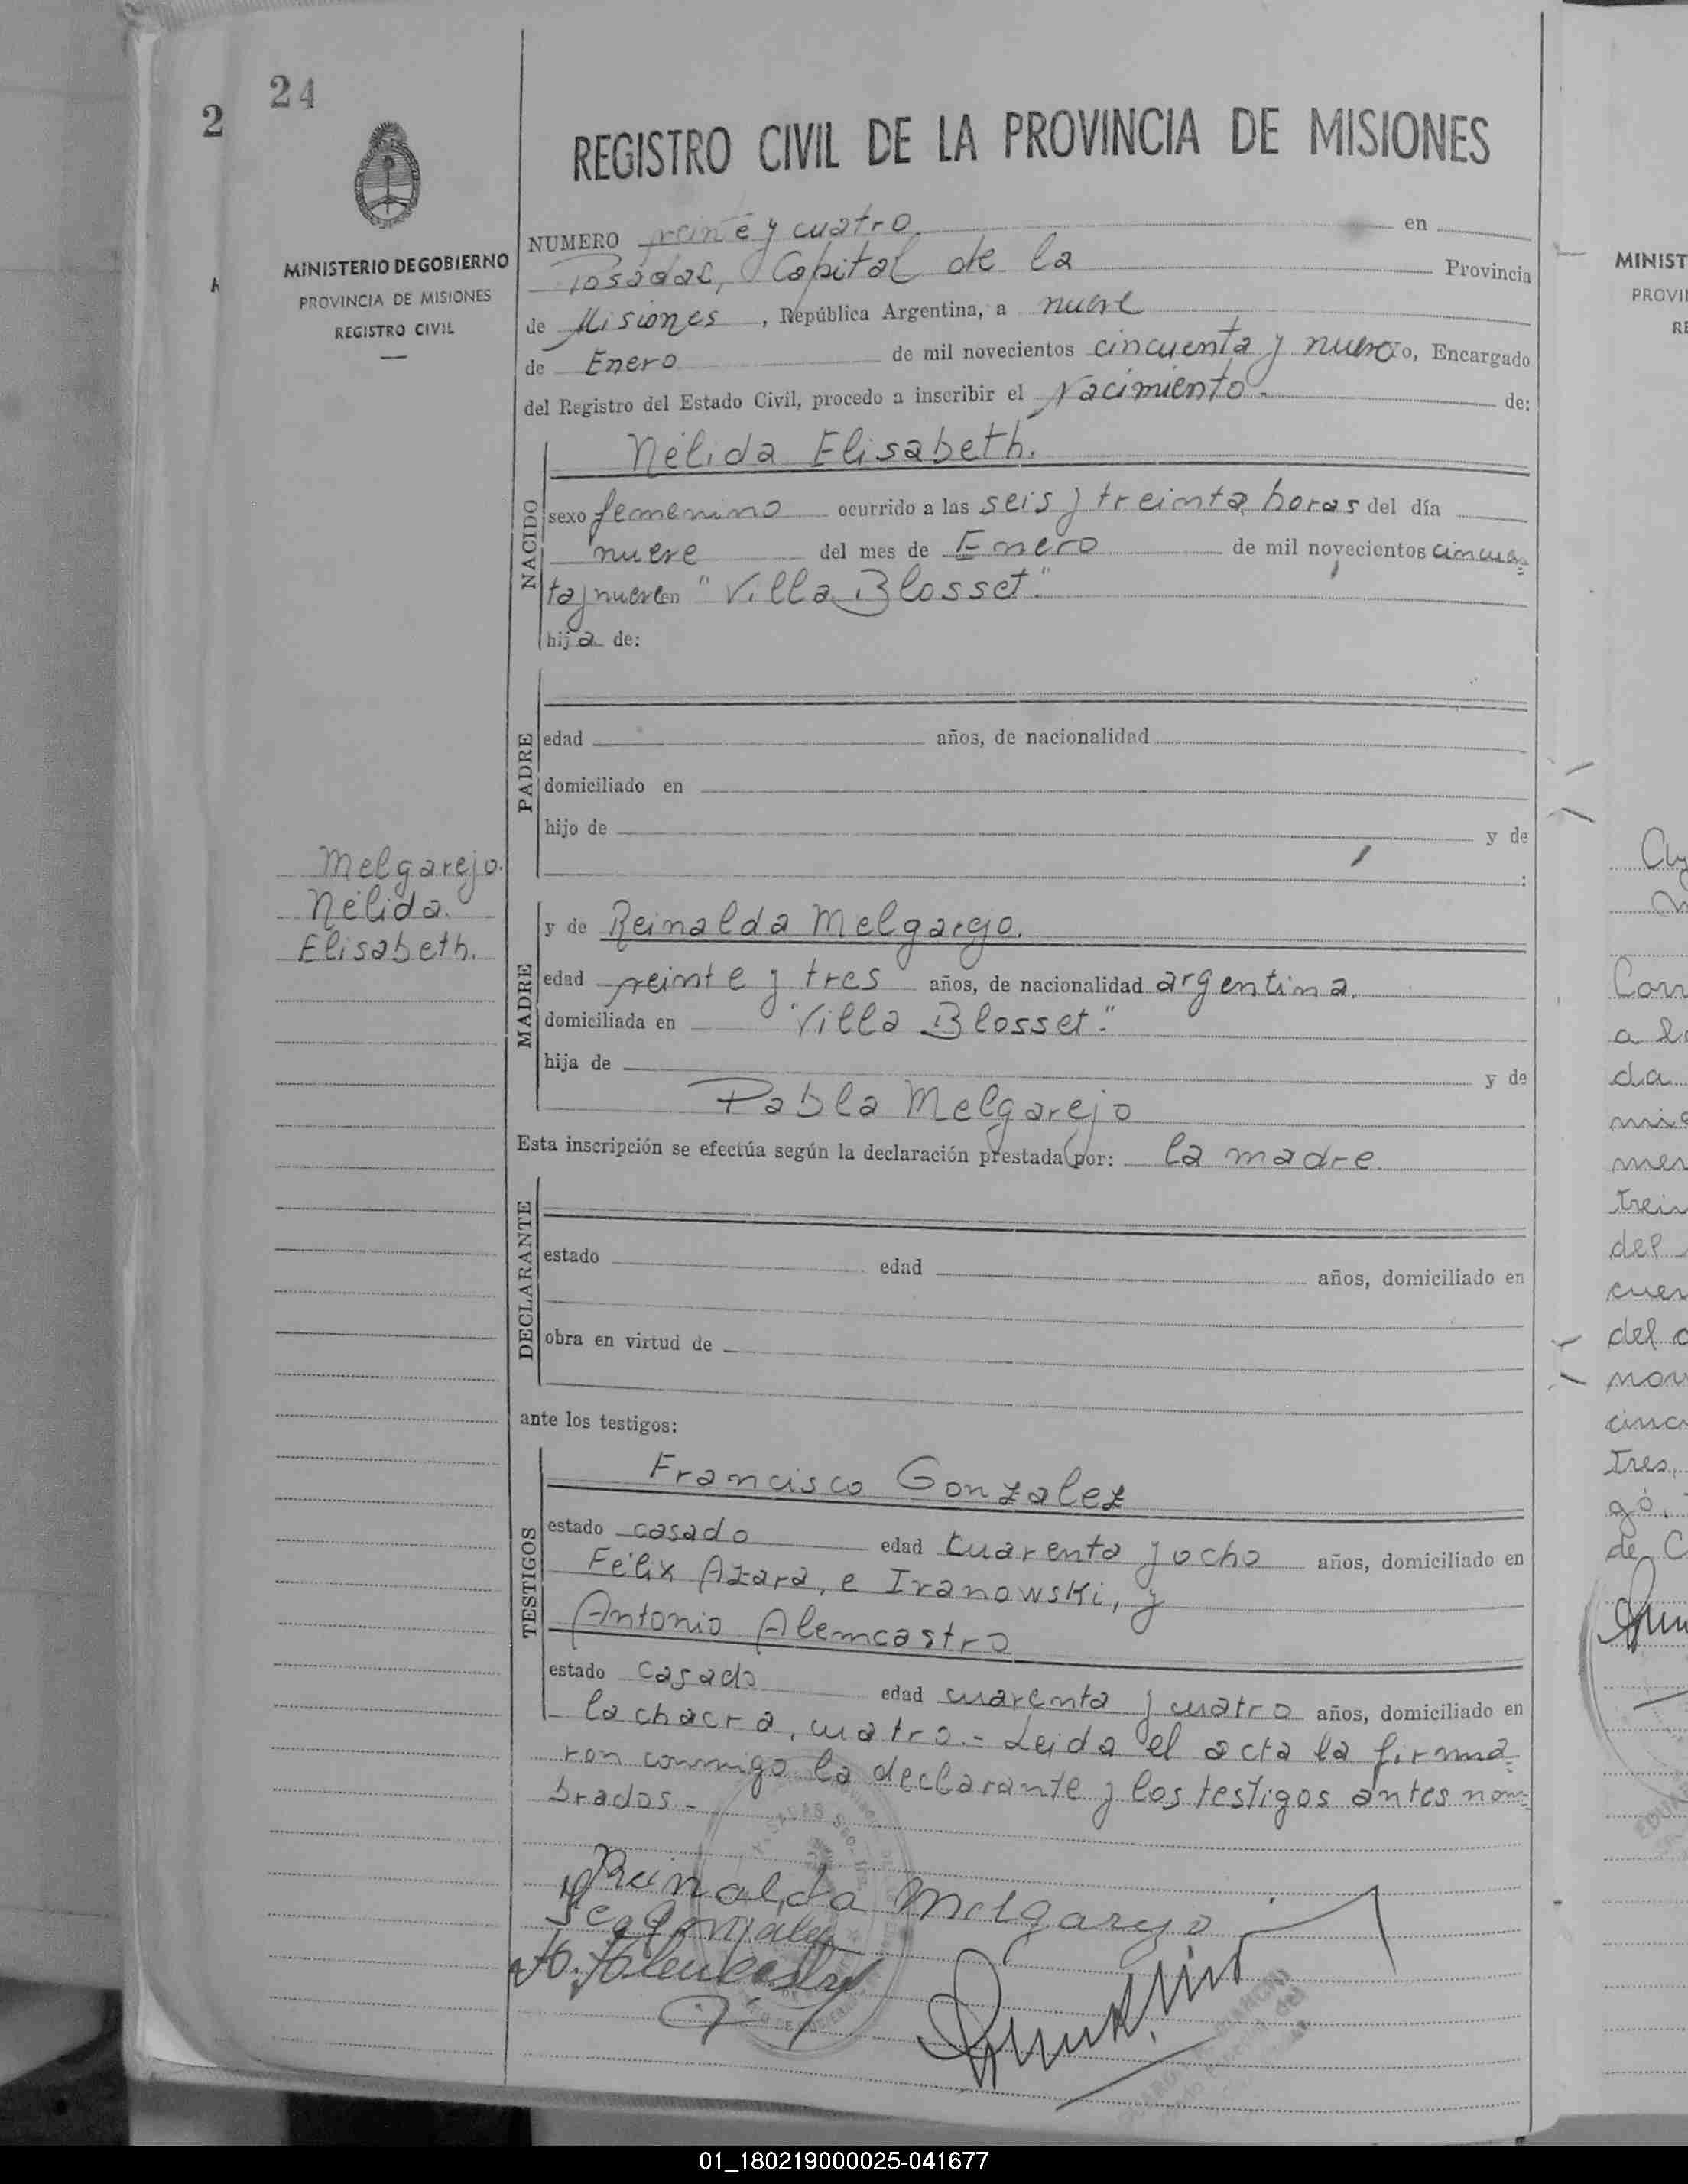 24
2
REGISTRO CIVIL DE LA PROVINCIA DE MISIONES
MINISTERIO DE GOBIERNO
PROVINCIA DE MISIONES
REGISTRO CIVIL
NUMERO veinte y cuatro en
Posadas, Capital de la Provincia
de Misiones, República Argentina, a nueve
de Enero de mil novecientos cincuenta y nueve yo, Encargado
del Registro del Estado Civil, procedo a inscribir el Nacimiento. de:
NACIDO
Nélida Elisabeth.
sexo femenino ocurrido a las seis y treinta horas del día
nueve del mes de Enero de mil novecientos cincuen
ta y nueve en "Villa Blosset."
hija de:
PADRE
edad años, de nacionalidad
domiciliado en
hijo de y de
:
Melgarejo.
Nélida.
Elisabeth.
MADRE
y de Reinalda Melgarejo.
edad veinte y tres años, de nacionalidad argentina.
domiciliada en "Villa Blosset."
hija de y de
Pabla Melgarejo
Esta inscripción se efectúa según la declaración prestada por: la madre
DECLARANTE
estado edad años, domiciliado en
obra en virtud de
ante los testigos:
TESTIGOS
Francisco Gonzalez
estado casado edad cuarenta y ocho años, domiciliado en
Félix Azara, e Ivanowski, y
Antonio Alemcastro
estado casado edad cuarenta y cuatro años, domiciliado en
la chacra, cuatro.- Leida el acta la firma
ron conmigo la declarante y los testigos antes nom
brados.-
Reinalda Melgarejo
MINIST
PROVI
RE
01_180219000025-041677